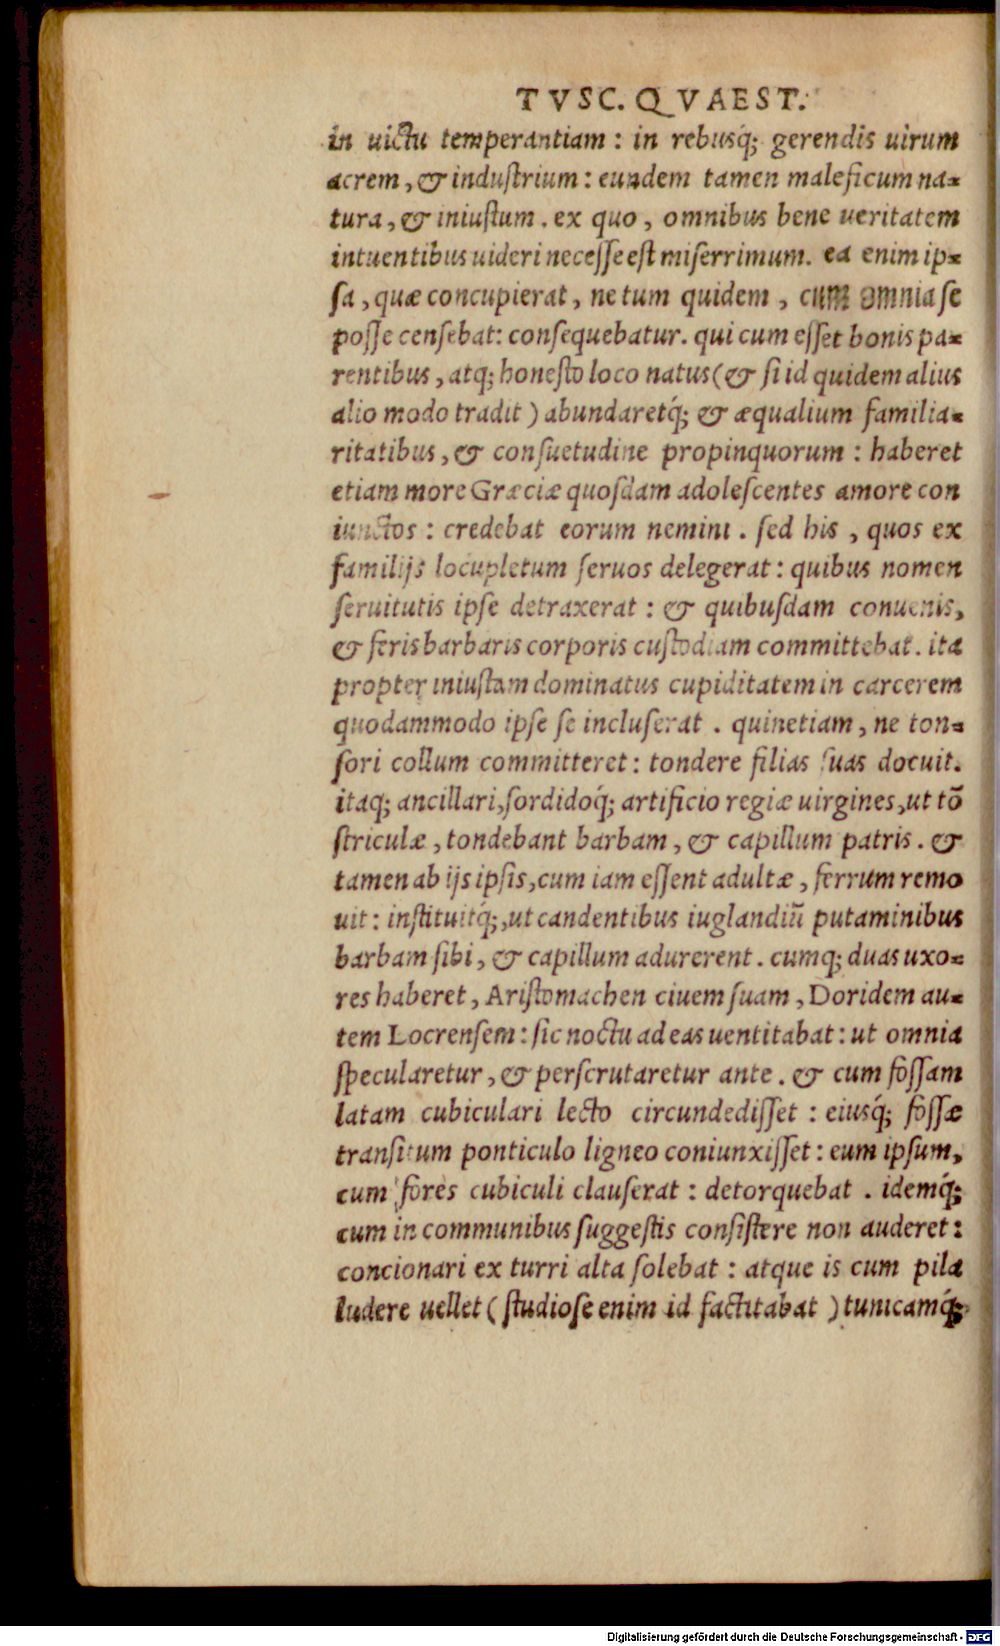 TVSC. QVAEST.
in uictu temperantiam : in rebusq́; gerendis uirum
acrem, & industrium : eundem tamen maleficum na-
tura, & iniustum. ex quo, omnibus bene ueritatem
intuentibus uideri necesse est miserrimum. ea enim ip-
sa, quæ concupierat, ne tum quidem, cum omnia se
posse censebat: consequebatur. qui cum esset bonis pa-
rentibus, atq; honesto loco natus (& si id quidem alius
alio modo tradit) abundaretq́; & æqualium familia-
ritatibus, & consuetudine propinquorum : haberet
etiam more Græciæ quosdam adolescentes amore con
iunctos : credebat eorum nemini. sed his, quos ex
familijs locupletum seruos delegerat : quibus nomen
seruitutis ipse detraxerat : & quibusdam conuenis,
& feris barbaris corporis custodiam committebat. ita
propter iniustam dominatus cupiditatem in carcerem
quodammodo ipse se incluserat. quinetiam, ne ton-
sori collum committeret : tondere filias suas docuit.
itaq; ancillari, sordidoq́; artificio regiæ uirgines, ut tõ
striculæ, tondebant barbam, & capillum patris. &
tamen ab ijs ipsis, cum iam essent adultæ, ferrum remo
uit : instituitq́;, ut candentibus iuglandiũ putaminibus
barbam sibi, & capillum adurerent. cumq; duas uxo-
res haberet, Aristomachen ciuem suam, Doridem au-
tem Locrensem : sic noctu ad eas uentitabat : ut omnia
specularetur, & perscrutaretur ante. & cum fossam
latam cubiculari lecto circundedisset : eiusq́; fossæ
transitum ponticulo ligneo coniunxisset : eum ipsum,
cum fores cubiculi clauserat : detorquebat. idemq́;
cum in communibus suggestis consistere non auderet :
concionari ex turri alta solebat : atque is cum pila
ludere uellet (studiose enim id factitabat) tunicamq́;
Digitalisierung gefördert durch die Deutsche Forschungsgemeinschaft - DFG